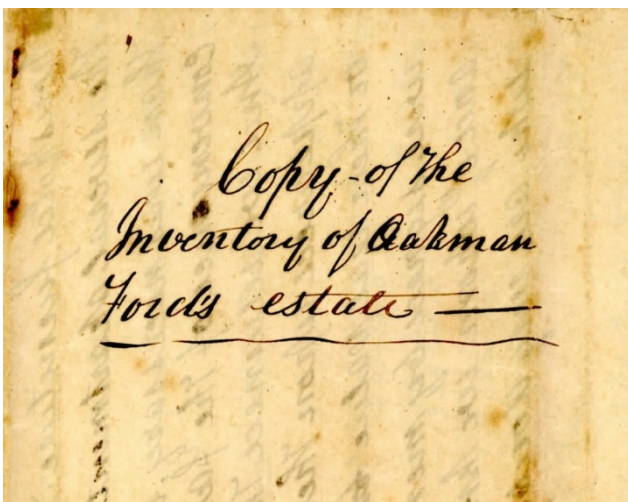 Copy of the
Inventory of Oakman
Ford's estate —